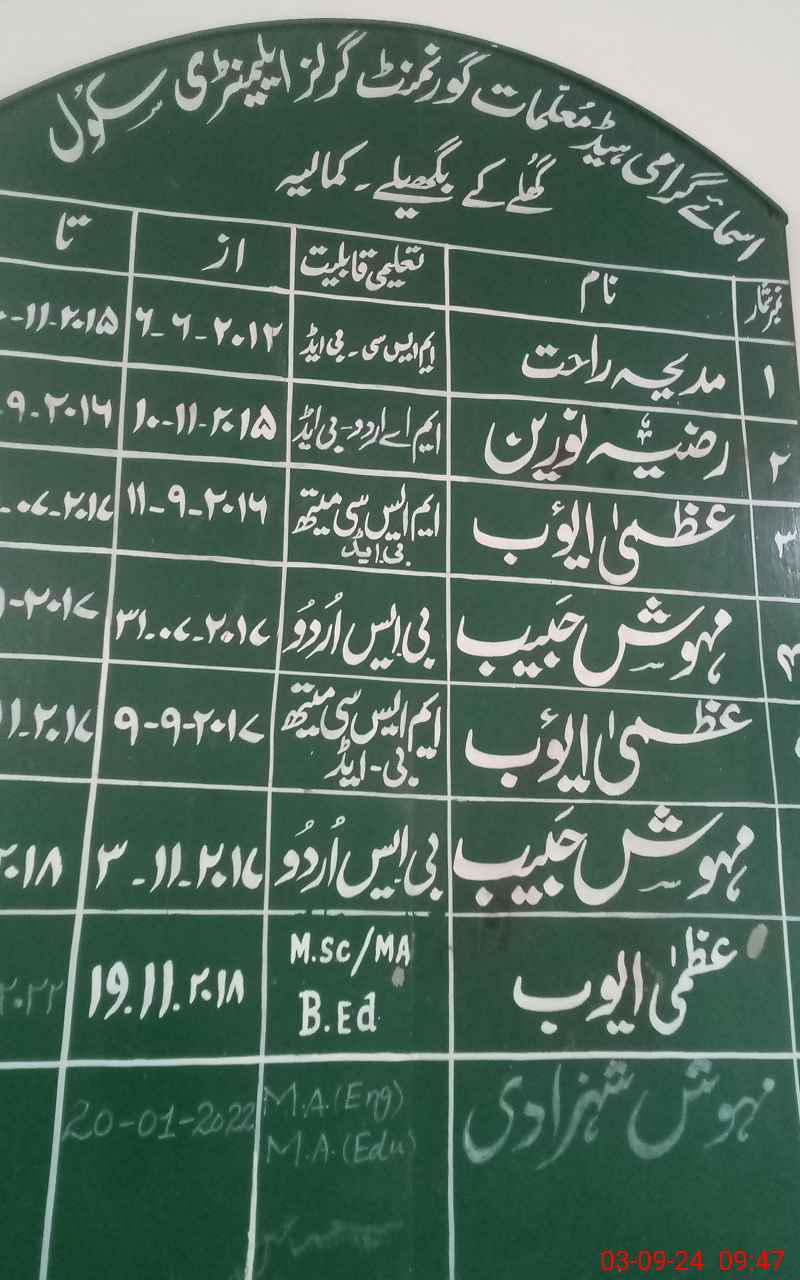 اسمائے گرامی ہیڈ معلمات گورنمنٹ گرلز ایلیمنٹری سکول
گھلے کے بگھیلے۔ کمالیہ
نمبر شمار نام تعلیمی قابلیت از تا
۱ مدیحہ راحت ایم ایس سی۔ بی ایڈ ۶-۶-۲۰۱۲ ۱۱-۲۰۱۵
۲ رضیہ نورین ایم اے اردو-بی ایڈ ۱۰-۱۱-۲۰۱۵ ۹-۲۰۱۶
۳ عظمیٰ ایوب ایم ایس سی میتھ ۱۱-۹-۲۰۱۶ ۰۷-۲۰۱۷
بی ایڈ
۴ مہوش حبیب بی ایس اُردُو ۳۱-۰۷-۲۰۱۷ ۲۰۱۷
عظمیٰ ایوب ایم ایس سی میتھ ۹-۹-۲۰۱۷ ۱۱-۲۰۱۷
بی-ایڈ
مہوش حبیب بی ایس اُردُو ۳-۱۱-۲۰۱۷ ۲۰۱۸
عظمیٰ ایوب M.Sc/MA ۱۹.۱۱.۲۰۱۸ ۲۰۲۲
B.Ed
مہوش شہزادی M.A.(Eng) 20-01-2022
M.A.(Edu)
03-09-24 09:47